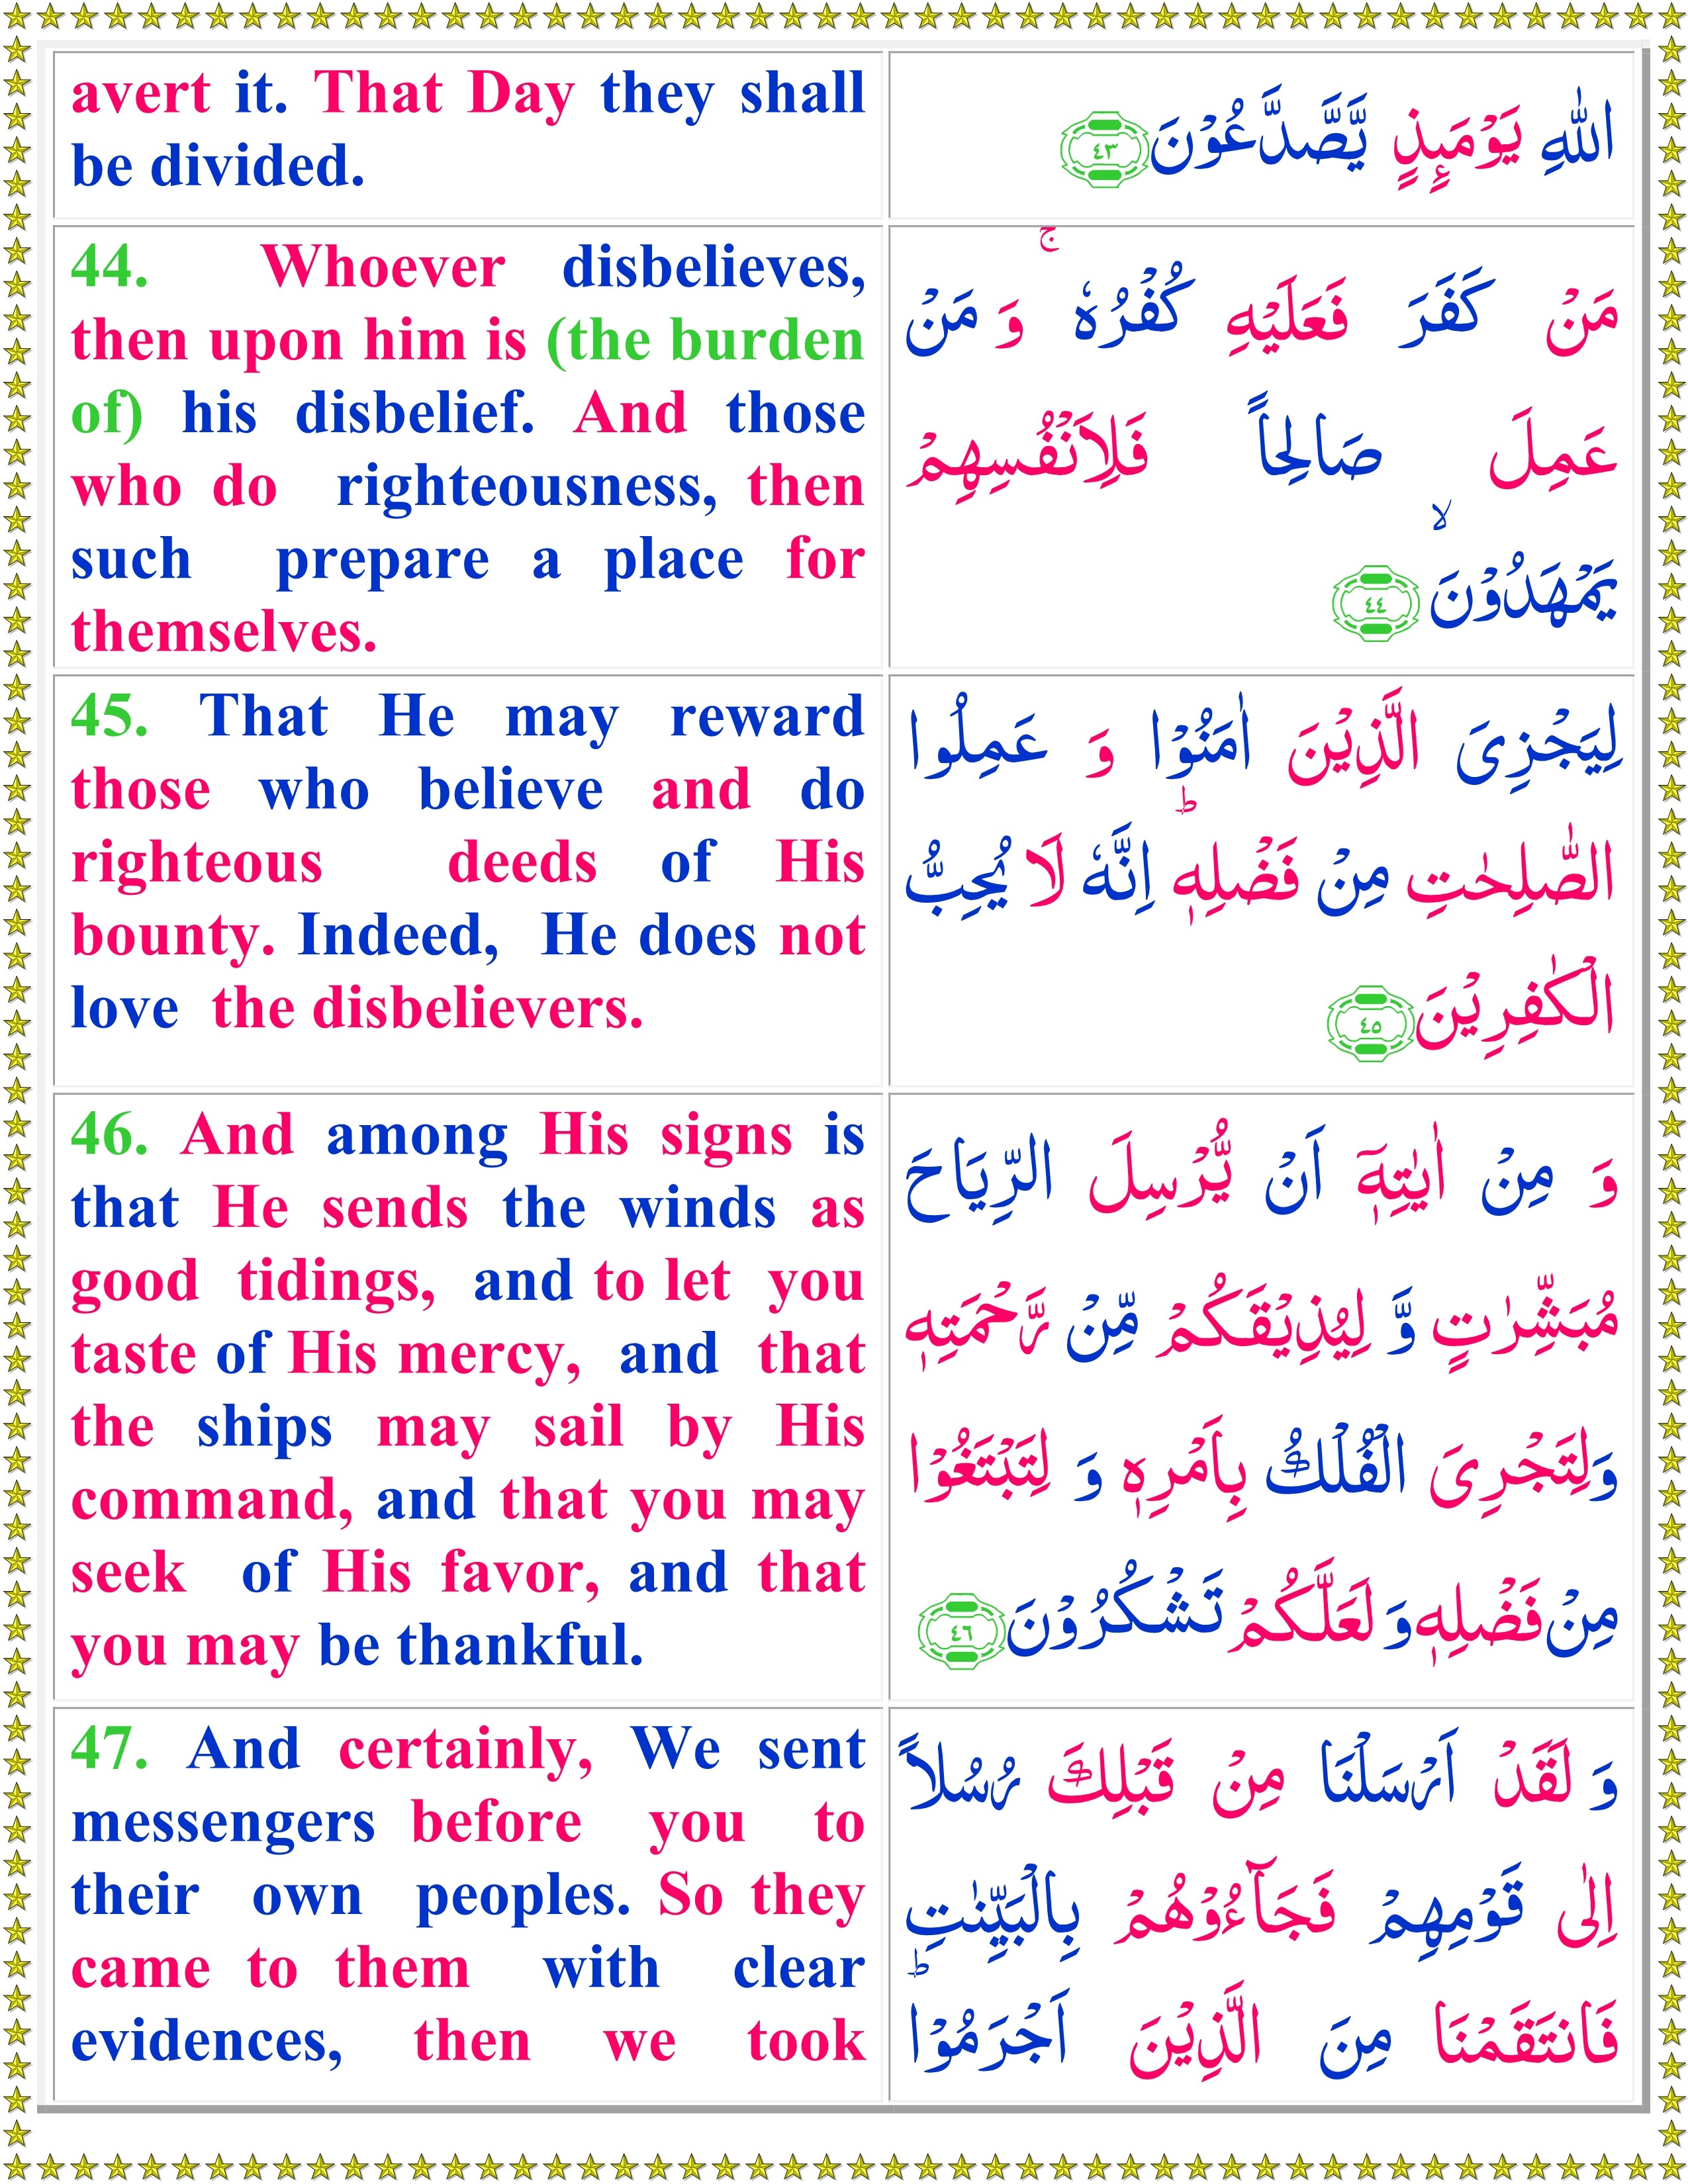 avert it. That Day they shall
be divided.
اللّٰهِ يَوْمَىِٕذٍ يَّصَّدَّعُوْنَ ﴿٤٣﴾
44. Whoever disbelieves,
then upon him is (the burden
of) his disbelief. And those
who do righteousness, then
such prepare a place for
themselves.
مَنْ كَفَرَ فَعَلَيْهِ كُفْرُهٗ ۚ وَ مَنْ
عَمِلَ صَالِحاً فَلِاَنْفُسِهِمْ
يَمْهَدُوْنَ ۙ ﴿٤٤﴾
45. That He may reward
those who believe and do
righteous deeds of His
bounty. Indeed, He does not
love the disbelievers.
لِيَجْزِىَ الَّذِيْنَ اٰمَنُوْا وَ عَمِلُوا
الصّٰلِحٰتِ مِنْ فَضْلِهٖ ؕ اِنَّهٗ لَا يُحِبُّ
الْكٰفِرِيْنَ ﴿٤٥﴾
46. And among His signs is
that He sends the winds as
good tidings, and to let you
taste of His mercy, and that
the ships may sail by His
command, and that you may
seek of His favor, and that
you may be thankful.
وَ مِنْ اٰيٰتِهٖۤ اَنْ يُّرْسِلَ الرِّيَاحَ
مُبَشِّرٰتٍ وَّ لِيُذِيْقَكُمْ مِّنْ رَّحْمَتِهٖ
وَلِتَجْرِىَ الْفُلْكُ بِاَمْرِهٖ وَ لِتَبْتَغُوْا
مِنْ فَضْلِهٖ وَ لَعَلَّكُمْ تَشْكُرُوْنَ ﴿٤٦﴾
47. And certainly, We sent
messengers before you to
their own peoples. So they
came to them with clear
evidences, then we took
وَ لَقَدْ اَرْسَلْنَا مِنْ قَبْلِكَ رُسُلاً
اِلٰى قَوْمِهِمْ فَجَآءُوْهُمْ بِالْبَيِّنٰتِ
فَانتَقَمْنَا مِنَ الَّذِيْنَ اَجْرَمُوْا ؕ